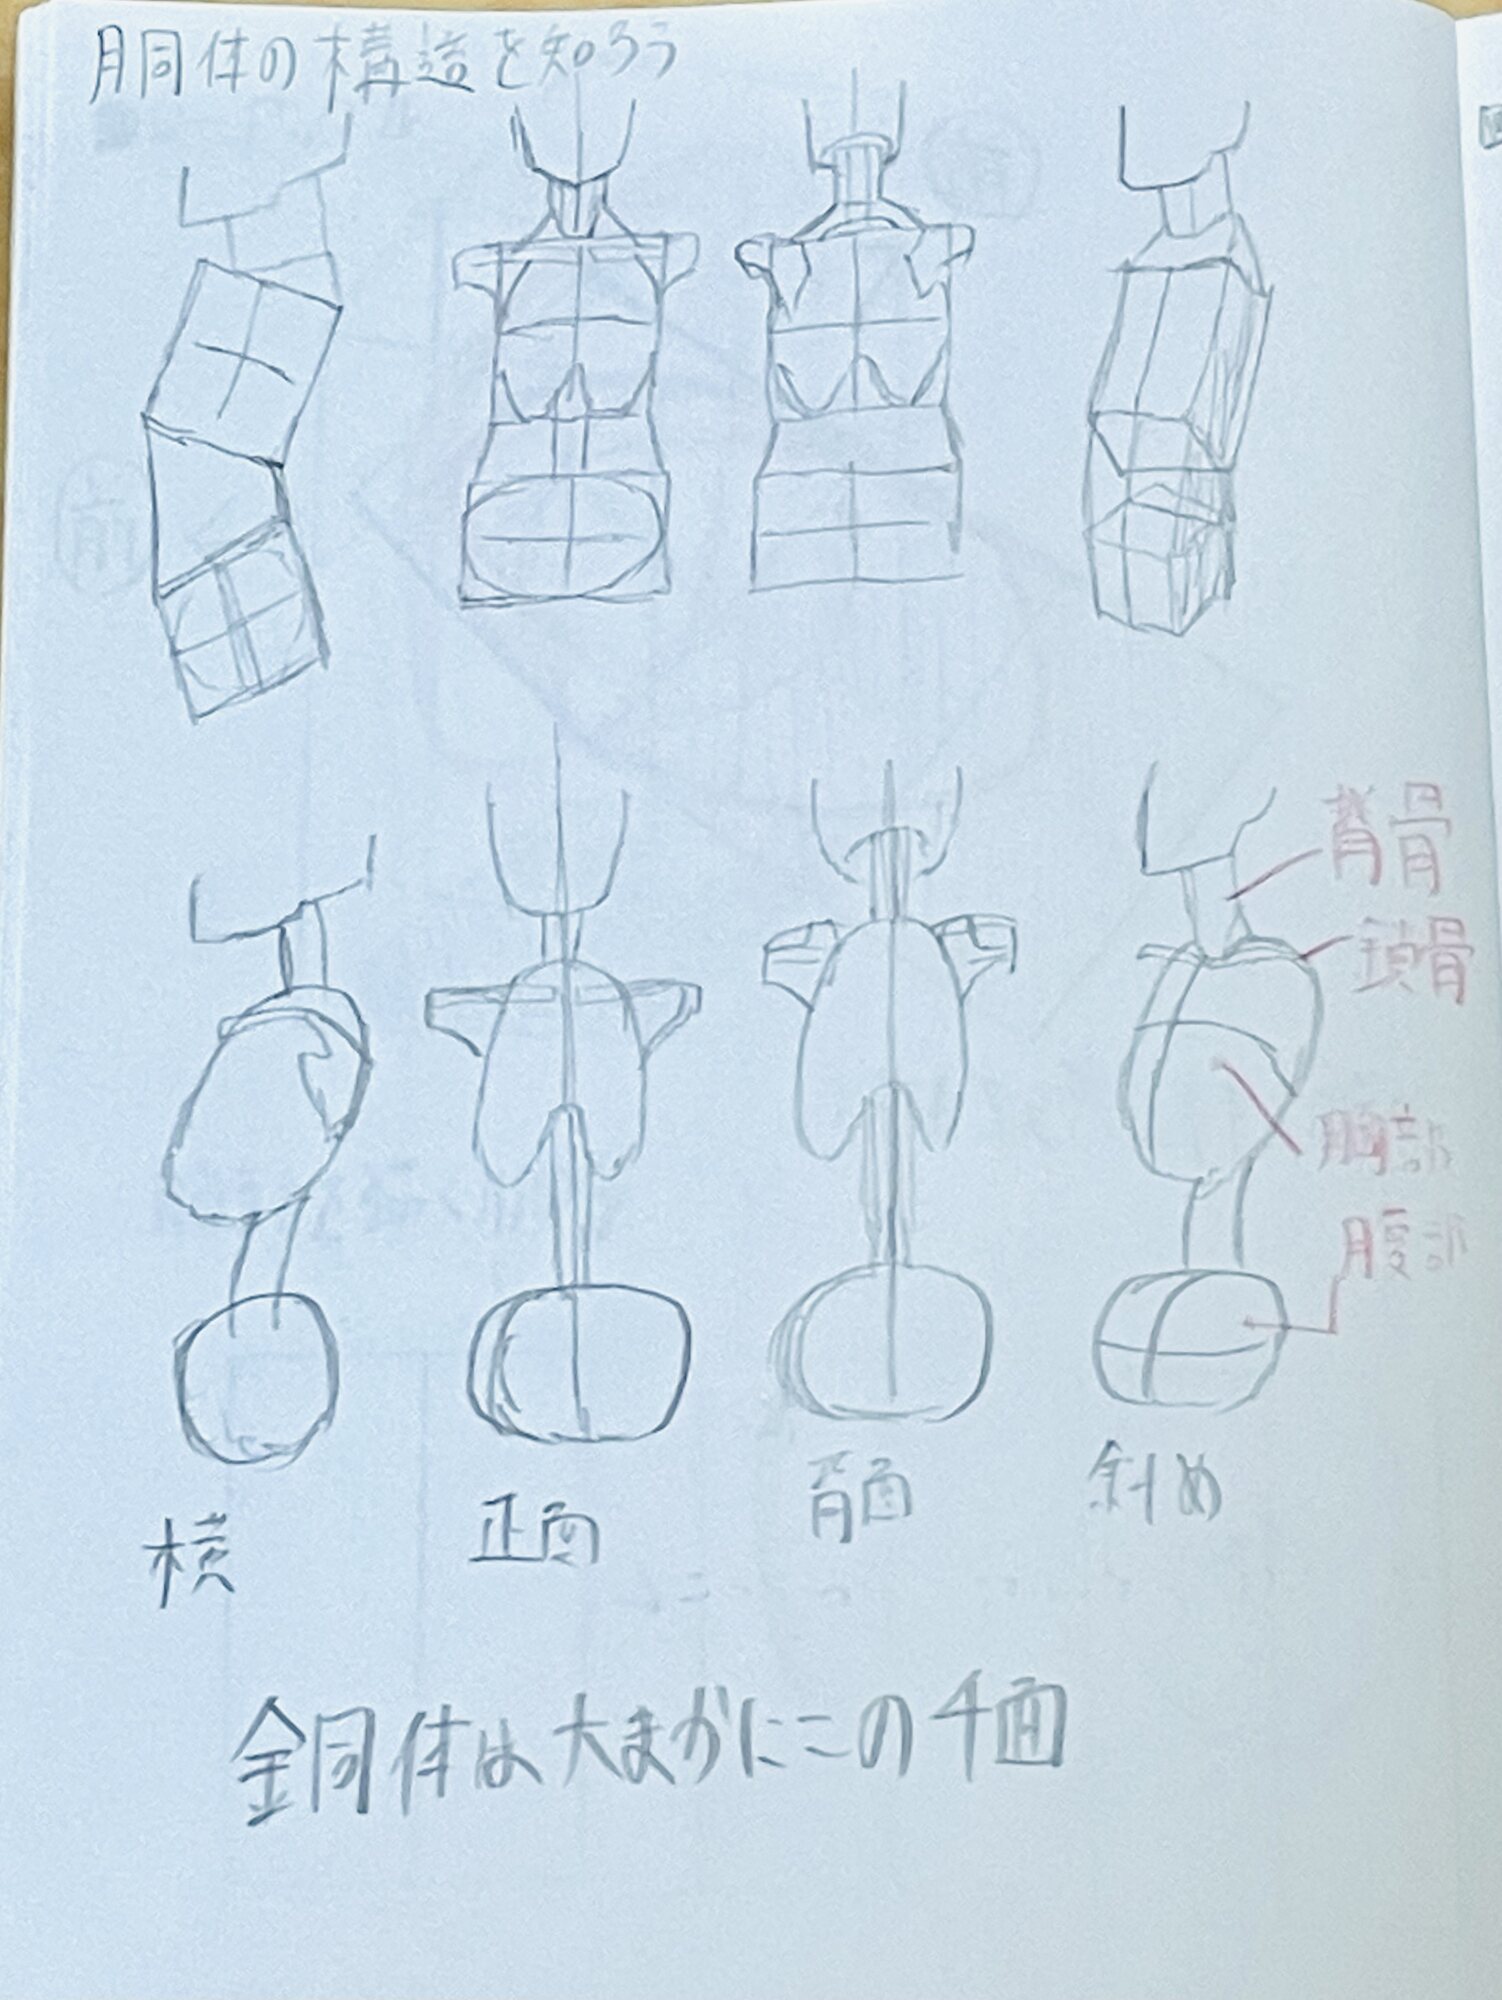 胴体の構造を知ろう
背骨
鎖骨
胸部
腹部
横
正面
背面
斜め
銅体は大まかにこの4面